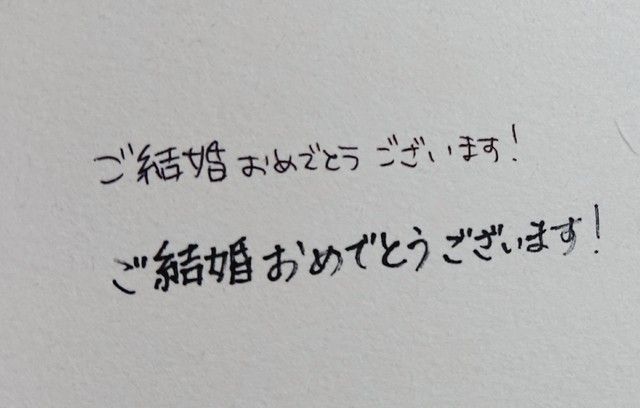 ご結婚おめでとうございます!
ご結婚おめでとうございます!